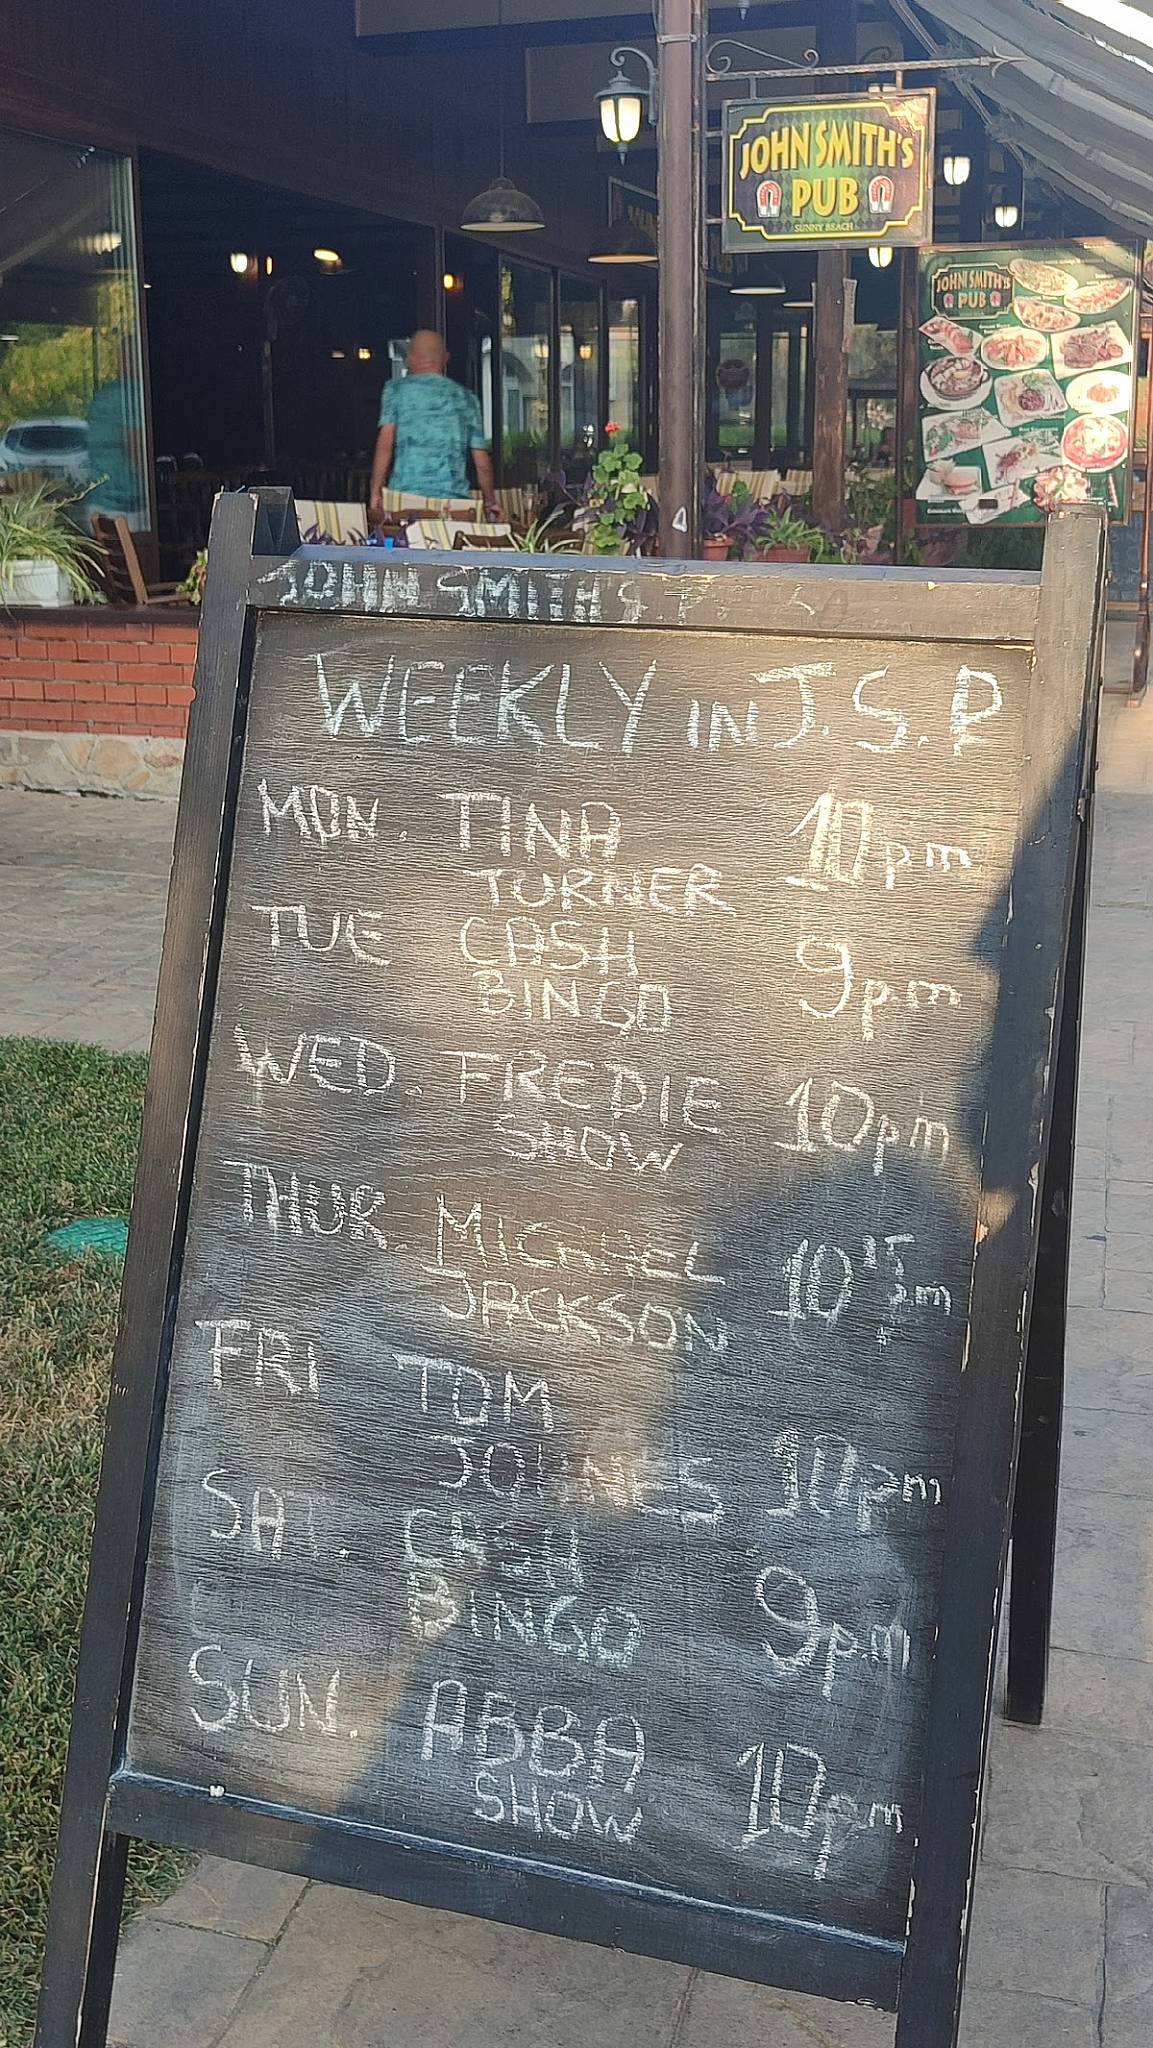 JOHN SMITH'S
PUB
SUNNY BEACH
JOHN SMITH'S
PUB
JOHN SMITH'S
WEEKLY IN J.S.P
MON. TINA TURNER 10pm
TUE CASH BINGO 9pm
WED. FREDIE SHOW 10pm
THUR. MICHAEL JACKSON 10 15 pm
FRI TOM JOHNES 10pm
SAT. CASH BINGO 9pm
SUN. ABBA SHOW 10pm